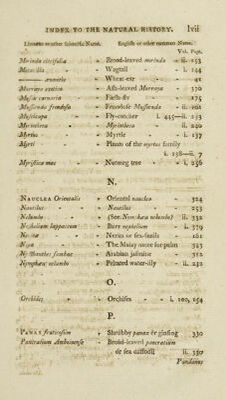 INDEX TO THE NATURAL HISTORY. lvii
Linnæan or other Scientific Name. English or other common Name.
Vol. Page.
Morinda citrifolia - Broad-leaved morinda - ii. 253
Motacilla - Wagtail - i. 144
œnanthe - Wheat-ear - 41
Murraya exotica - Ash-leaved Murraya - 370
Musca carnaria - Flesh-fly - 175
Mussænda frondosa - Frondose Mussænda ii.
Muscicapa - Fly-catcher i. 445—ii. 233
Myrtus - Myrtle - 137
Myrti - Plants of the myrtus family
i. 138—ii. 7
Myristica mos - Nutmeg tree - i. 256
N.
NAUCLEA Orientalis - Oriental nauclea - 324
Nautilus - Nautilus - 253
Nelumbo - (See Nymphæa nelumbo) ii. 232
Nephelium lappaceum - Burr nephelium - 379
Nerita - Nerita or sea-snails - 161
Nepa - The Malay name for palm 343
Nyctanthes sambac - Arabian jasmine - 312
Nymphæa nelumbo - Peltated water-lily - ii. 232
O.
Orchides - Orchises - i. 100, 154
P.
PANAX fruticosum - Shrubby panax or ginseng 330
Pancratium Amboinense - Broad-leaved pancratium
or sea daffodil ii. 350
Pandanus